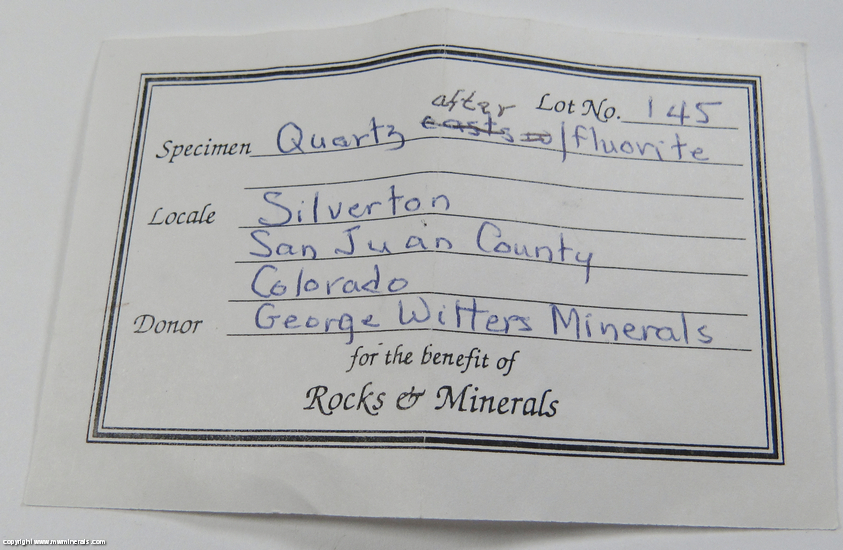 after Lot No. 145
Specimen Quartz casts / fluorite
Locale Silverton
San Juan County
Colorado
Donor George Witters Minerals
for the benefit of
Rocks & Minerals
copyright www.mwminerals.com